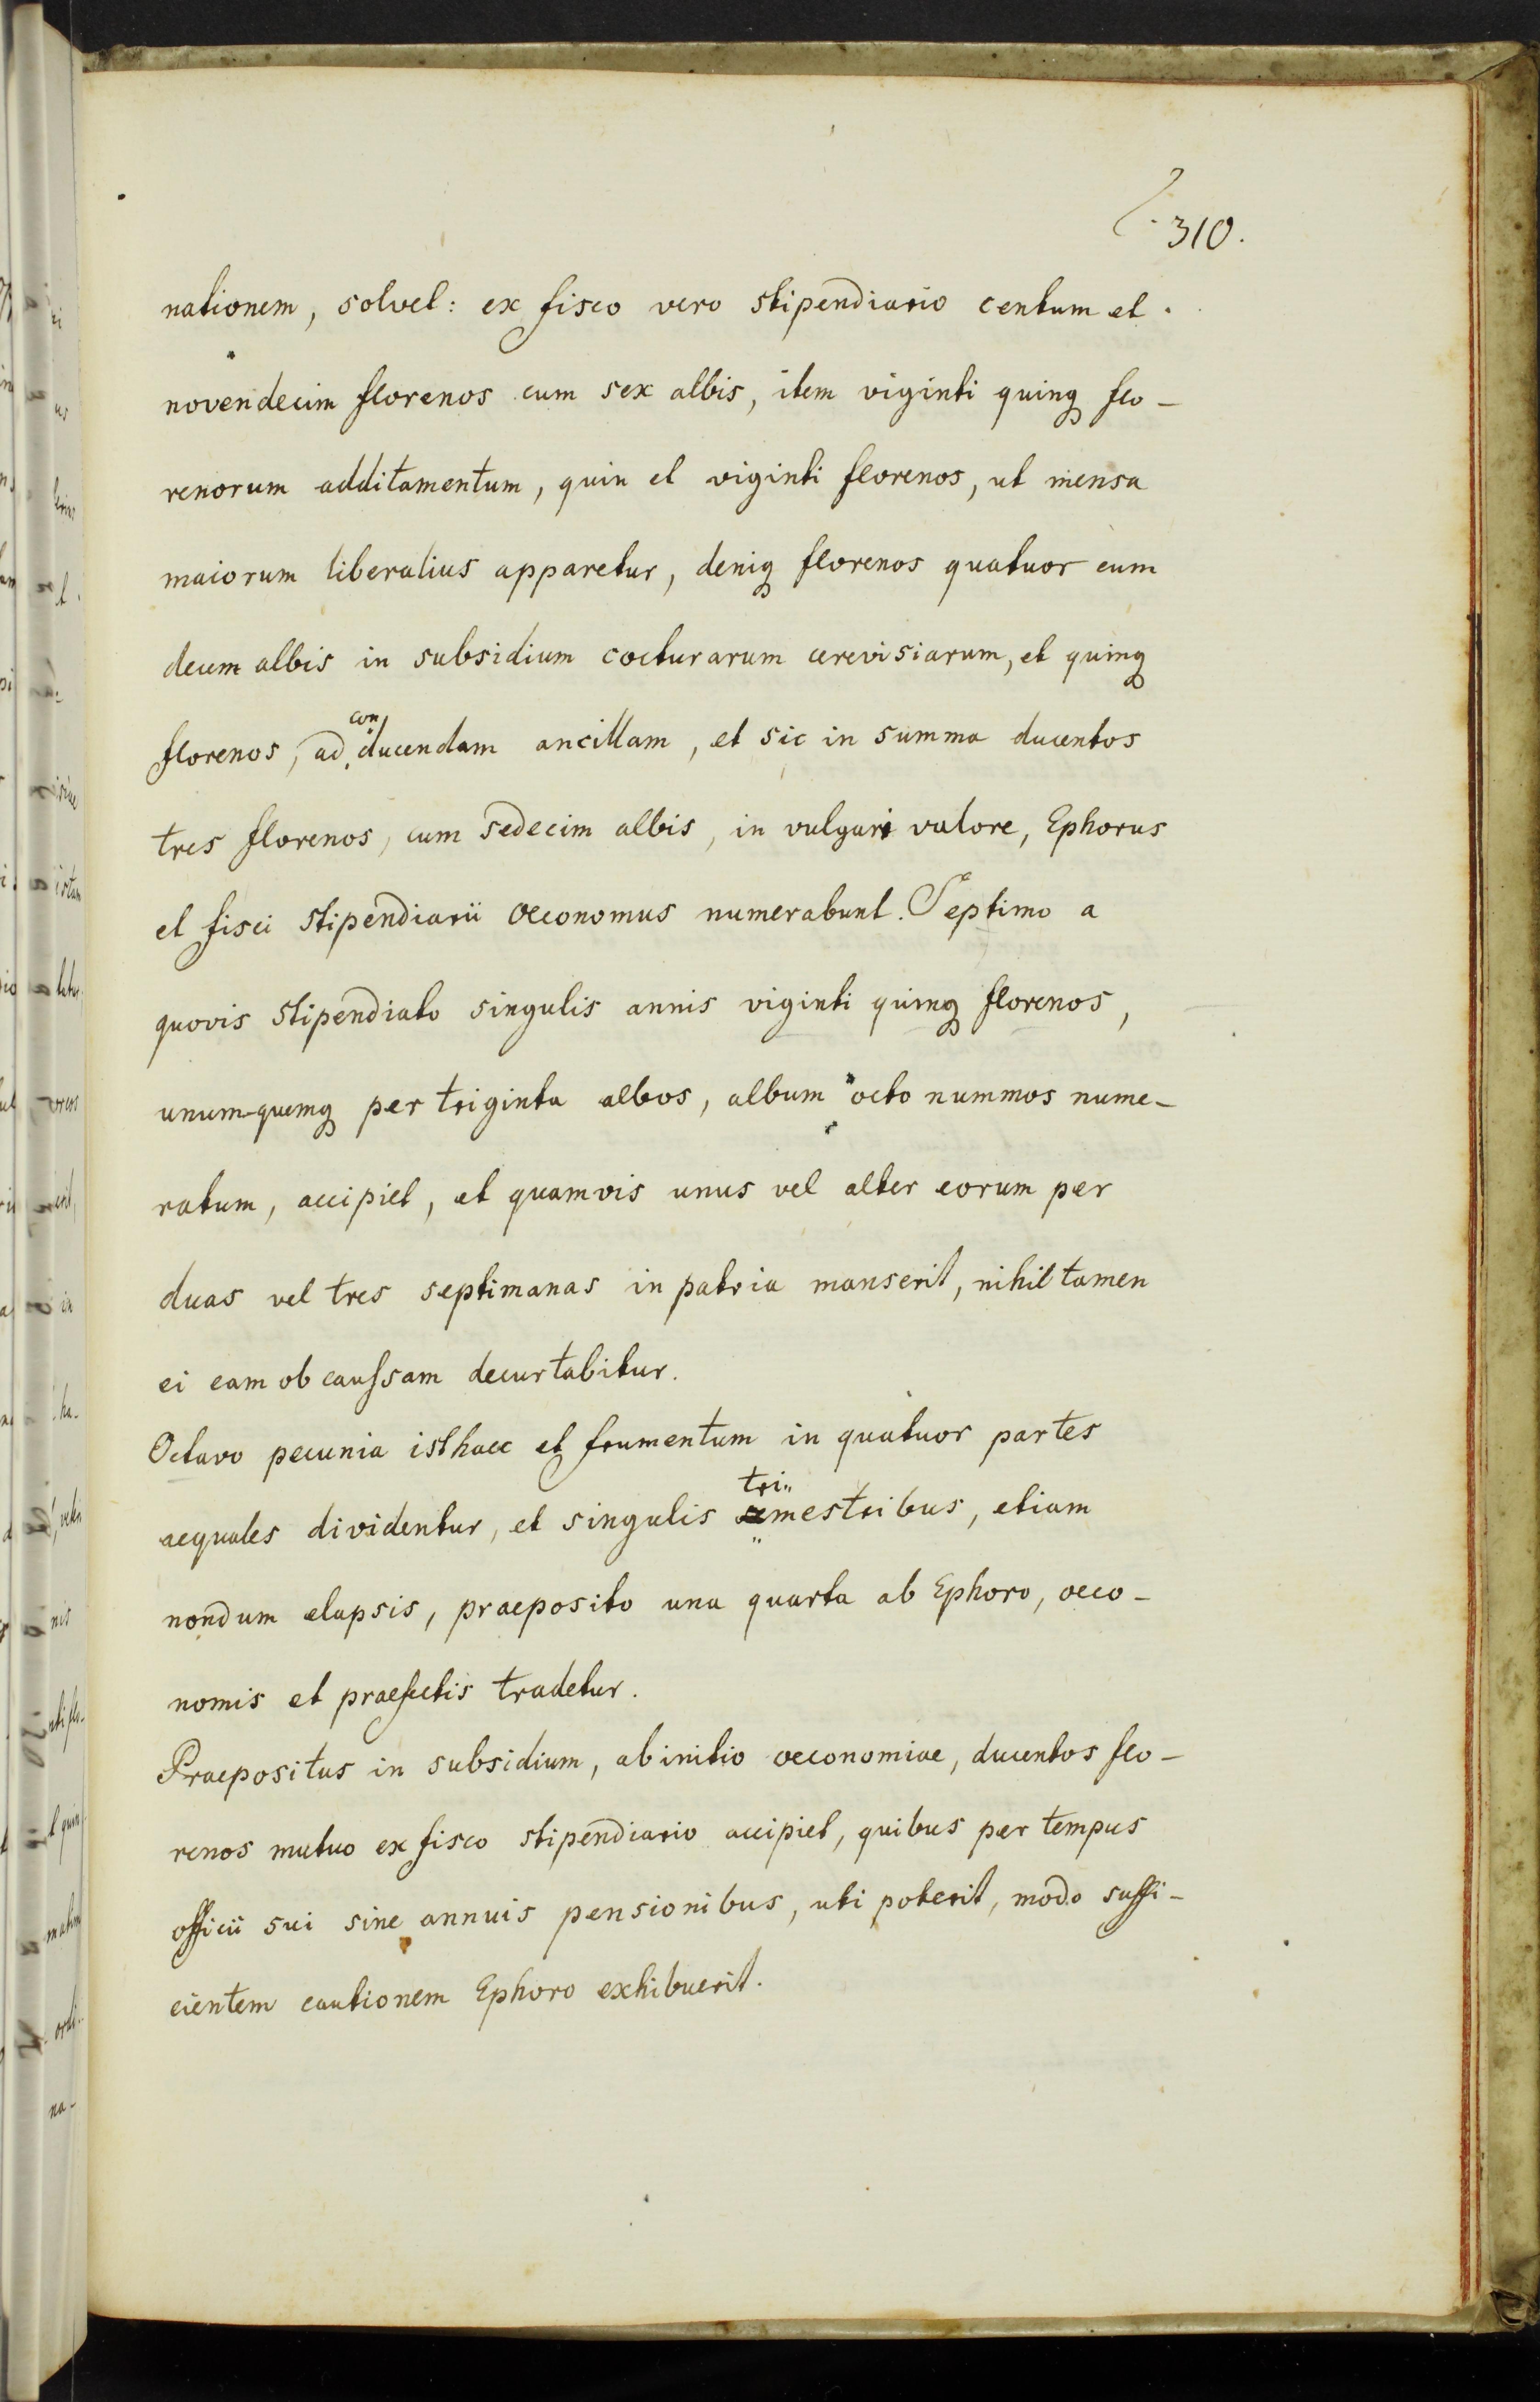 310.
nationem, solvet: ex fisco vero stipendiario centum et
novendecim florenos cum sex albis, item viginti quinq flo-
renorum additamentum, quin et viginti florenos, ut mensa
maiorum liberalius apparetur, deniq florenos quatuor cum
decem albis in subsidium cocturarum cerevisiarum, et quinq
florenos, ad conducendam ancillam, et sic in summa ducentos
tres florenos, cum sedecim albis, in vulgari valore, Ephorus
et fisci stipendiarii oeconomus numerabunt. Septimo a
quovis stipendiato singulis annis viginti quinq florenos,
unum-quemq per triginta albos, album octo nummos nume-
ratum, accipiet, et quamvis unus vel alter eorum per
duas vel tres septimanas in patria manserit, nihil tamen
ei eam ob caussam decurtabitur.
Octavo pecunia isthaec et frumentum in quatuor partes
aequales dividentur, et singulis trimestribus, etiam
nondum elapsis, praeposito una quarta ab Ephoro, oeco-
nomis et praefectis tradetur.
Praepositus in subsidium, ab initio oeconomiae, ducentos flo-
renos mutuo ex fisco stipendiario accipiet, quibus per tempus
officii sui sine annuis pensionibus, uti poterit, modo suffi-
cientem cautionem Ephoro exhibuerit.